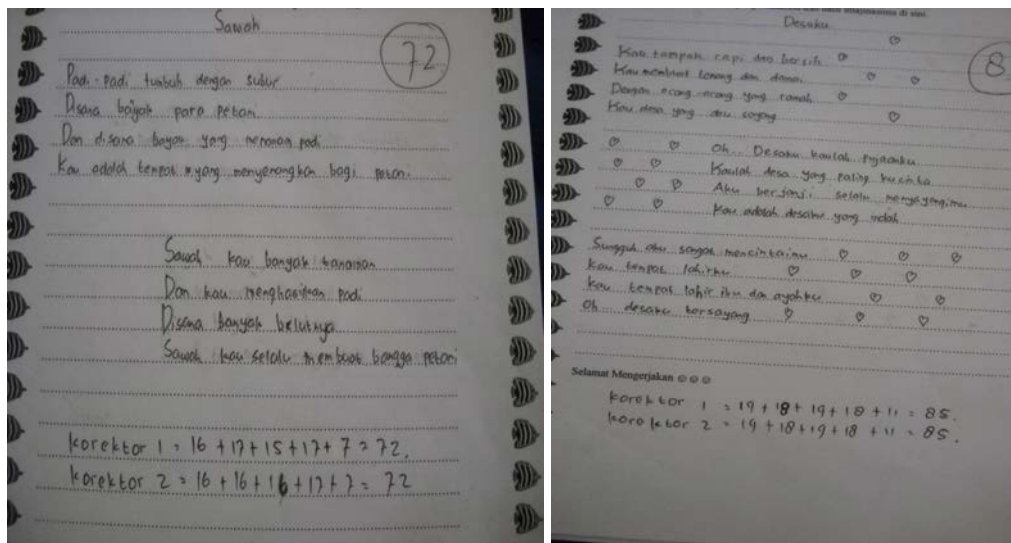 Sawah
72
Padi-padi tumbuh dengan subur
Disana banyak para petani
Dan disana banyak yang menanam padi
Kau adalah tempat yang menyenangkan bagi petani
Sawah kau banyak tanaman
Dan kau menghasilkan padi
Disana banyak belutnya
Sawah kau selalu membuat bangga petani
korektor 1 = 16 + 17 + 15 + 17 + 7 = 72.
korektor 2 = 16 + 16 + 16 + 17 + 7 = 72
di sini.
Desaku
8
Kau tampak rapi dan bersih
Kau membuat tenang dan damai
Dengan orang-orang yang ramah
Kau desa yang aku sayang
Oh.. Desaku kaulah pujaanku
Kaulah desa yang paling kucinta
Aku berjanji selalu menyayangimu
Kau adalah desaku yang indah
Sungguh aku sangat mencintaimu
Kau tempat lahirku
Kau tempat lahir ibu dan ayahku
Oh desaku tersayang
Selamat Mengerjakan ☺☺☺
korektor 1 = 19 + 18 + 19 + 18 + 11 = 85.
korektor 2 = 19 + 18 + 19 + 18 + 11 = 85.